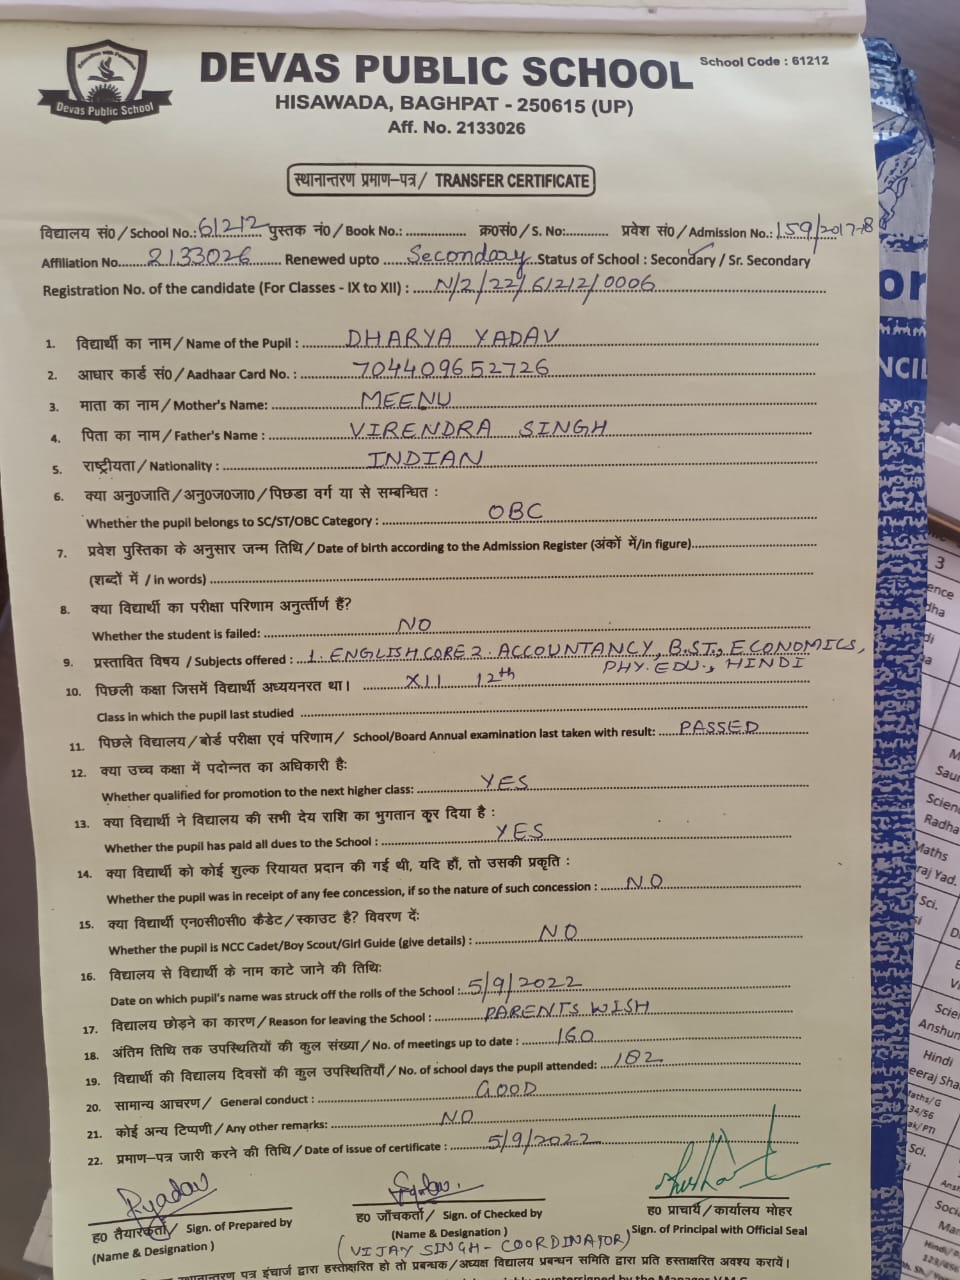 DEVAS PUBLIC SCHOOL
School Code : 61212
Devas Public School
HISAWADA, BAGHPAT - 250615 (UP)
Aff. No. 2133026
स्थानान्तरण प्रमाण-पत्र / TRANSFER CERTIFICATE
विद्यालय सं0 / School No.: 61212 पुस्तक नं0 / Book No.: ............... क्र0सं0 / S. No:........... प्रवेश सं0 / Admission No.: 159/2017-18
Affiliation No. 2133026 Renewed upto Secondary Status of School : Secondary / Sr. Secondary
Registration No. of the candidate (For Classes - IX to XII) : N/2/22/61212/0006
1. विद्यार्थी का नाम / Name of the Pupil : DHARYA YADAV
2. आधार कार्ड सं0 / Aadhaar Card No. : 704409652726
3. माता का नाम / Mother's Name: MEENU
4. पिता का नाम / Father's Name : VIRENDRA SINGH
5. राष्ट्रीयता / Nationality : INDIAN
6. क्या अनु0जाति / अनु0ज0जा0 / पिछडा वर्ग या से सम्बन्धित :
Whether the pupil belongs to SC/ST/OBC Category : OBC
7. प्रवेश पुस्तिका के अनुसार जन्म तिथि / Date of birth according to the Admission Register (अंकों में/in figure)
(शब्दों में / in words)
8. क्या विद्यार्थी का परीक्षा परिणाम अनुर्त्तीर्ण हैं?
Whether the student is failed: NO
9. प्रस्तावित विषय / Subjects offered : 1. ENGLISH CORE 2. ACCOUNTANCY, B.ST., ECONOMICS,
PHY. EDU., HINDI
10. पिछली कक्षा जिसमें विद्यार्थी अध्ययनरत था। XII 12th
Class in which the pupil last studied
11. पिछले विद्यालय / बोर्ड परीक्षा एवं परिणाम / School/Board Annual examination last taken with result: PASSED
12. क्या उच्च कक्षा में पदोन्नत का अधिकारी है:
Whether qualified for promotion to the next higher class: YES
13. क्या विद्यार्थी ने विद्यालय की सभी देय राशि का भुगतान कर दिया है :
Whether the pupil has paid all dues to the School : YES
14. क्या विद्यार्थी को कोई शुल्क रियायत प्रदान की गई थी, यदि हाँ, तो उसकी प्रकृति :
Whether the pupil was in receipt of any fee concession, if so the nature of such concession : NO
15. क्या विद्यार्थी एन0सी0सी0 कैडेट / स्काउट है? विवरण दें:
Whether the pupil is NCC Cadet/Boy Scout/Girl Guide (give details) : NO
16. विद्यालय से विद्यार्थी के नाम काटे जाने की तिथि:
Date on which pupil's name was struck off the rolls of the School : 5/9/2022
17. विद्यालय छोड़ने का कारण / Reason for leaving the School : PARENTS WISH
18. अंतिम तिथि तक उपस्थितियों की कुल संख्या / No. of meetings up to date : 160
19. विद्यार्थी की विद्यालय दिवसों की कुल उपस्थितियाँ / No. of school days the pupil attended: 182
20. सामान्य आचरण / General conduct : GOOD
21. कोई अन्य टिप्पणी / Any other remarks: NO
22. प्रमाण-पत्र जारी करने की तिथि / Date of issue of certificate : 5/9/2022
Ryadav
ह0 तैयारकर्ता / Sign. of Prepared by
(Name & Designation )
ह0 जाँचकर्ता / Sign. of Checked by
(Name & Designation)
(VIJAY SINGH - COORDINATOR)
ह0 प्राचार्य / कार्यालय मोहर
Sign. of Principal with Official Seal
स्थानान्तरण पत्र इंचार्ज द्वारा हस्ताक्षरित हो तो प्रबन्धक / अध्यक्ष विद्यालय प्रबन्धन समिति द्वारा प्रति हस्ताक्षरित अवश्य करायें।
or
NCIL
3
Scien
Radha
Maths
raj Yad.
Sci.
Anshun
Hindi
eeraj Sha
34/56
Sci.